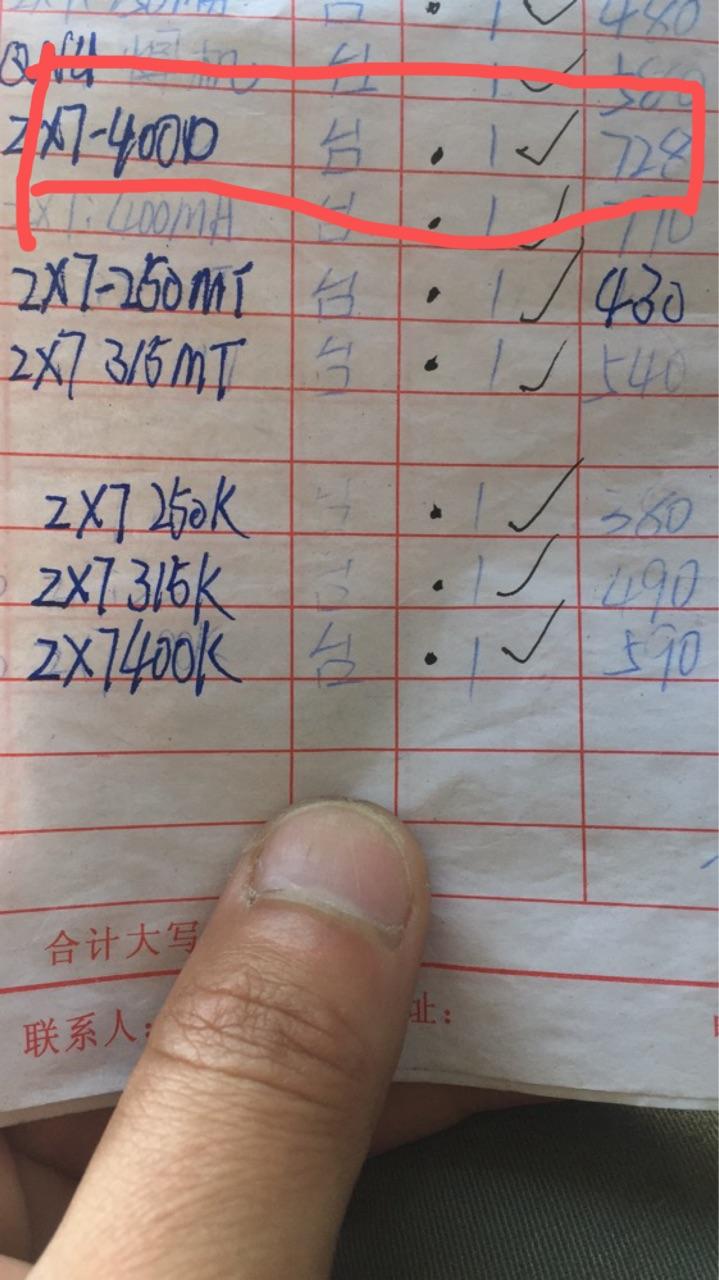 台 . 1 480
台 1 580
2X7-400D 台 . 1 728
400MA 台 . 1 770
2X7-250MT 台 . 1 430
2X7 315MT 台 . 1 540
2X7 250K 台 . 1 380
2X7 315K 台 . 1 490
2X7 400K 台 . 1 590
合计大写
联系人: 址: